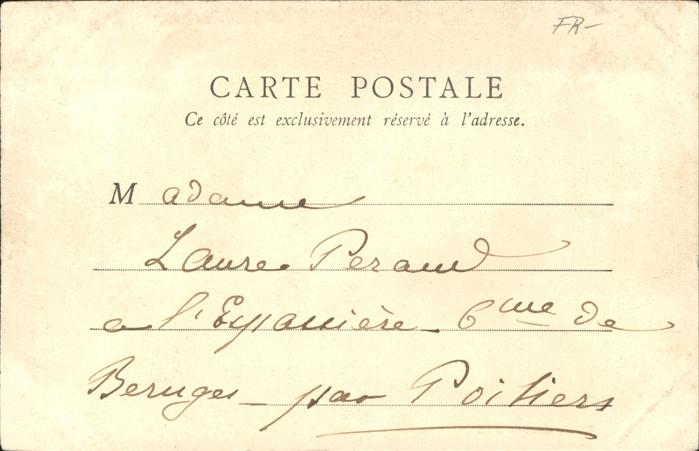 FR-
CARTE POSTALE
Ce côté est exclusivement réservé à l'adresse.
Madame
Laure Peraud
a l' Cme de
Beruges - par Poitiers